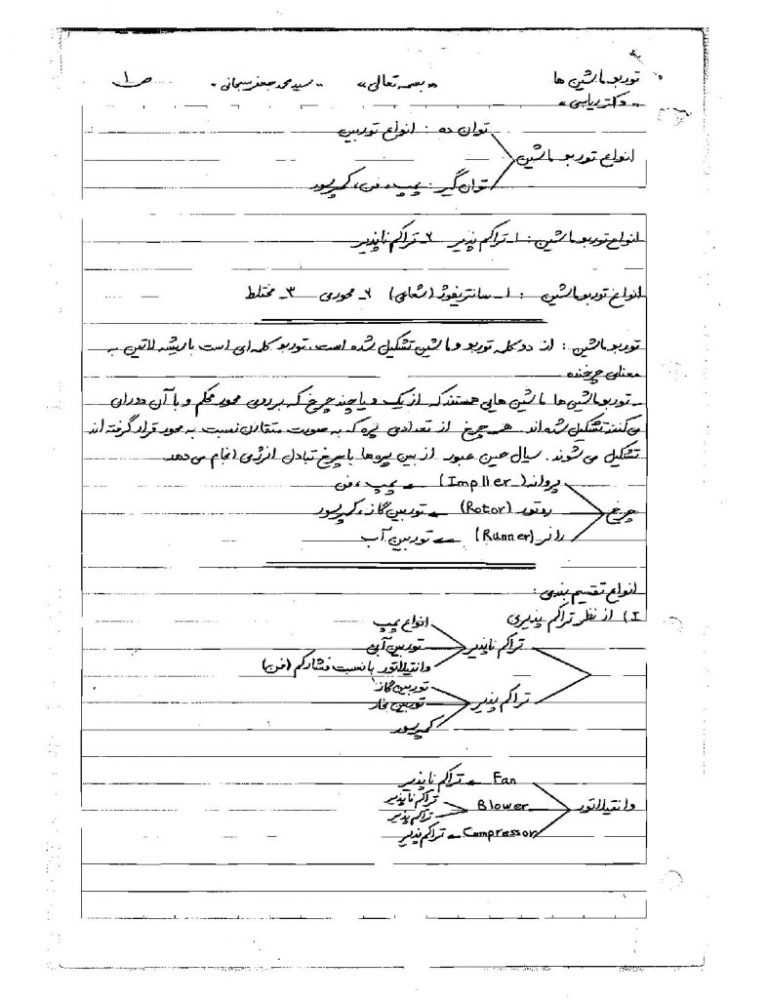 توربوماشین ها «بسمه تعالی» سید محمد جعفر سبحانی ص ۱
دکتر ریاسی
توان ده : انواع توربین
انواع توربوماشین
توان گیر : پمپ، فن، کمپرسور
انواع توربوماشین : ۱- تراکم پذیر ۲- تراکم ناپذیر
انواع توربوماشین : ۱- سانتریفوژ (شعاعی) ۲- محوری ۳- مختلط
توربوماشین : از دو کلمه توربو و ماشین تشکیل شده است. توربو کلمه ای است با ریشه لاتین به
معنای چرخنده
- توربوماشین ها ماشین هایی هستند که از یک و یا چند چرخ که بر روی محور محکم و با آن دوران
می کنند تشکیل شده اند. هر چرخ از تعدادی پره که به صورت متقارن نسبت به محور قرار گرفته اند
تشکیل می شوند. سیال حین عبور از بین پره ها با چرخ تبادل انرژی انجام می دهد.
پروانه (Impller) – پمپ، فن
چرخ روتور (Rotor) – توربین گاز، کمپرسور
رانر (Runner) – توربین آب
انواع تقسیم بندی :
I) از نظر تراکم پذیری
انواع پمپ
تراکم ناپذیر توربین آبی
وانتیلاتور با نسبت فشار کم (فن)
توربین گاز
تراکم پذیر توربین بخار
کمپرسور
Fan – تراکم ناپذیر
وانتیلاتور Blower تراکم ناپذیر
تراکم پذیر
Compressor – تراکم پذیر